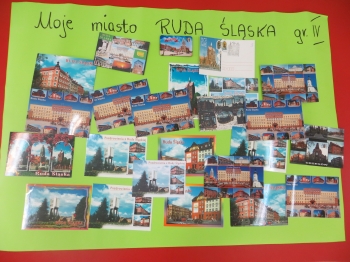 Moje miasto RUDA ŚLĄSKA gr. IV
Ruda Śląska